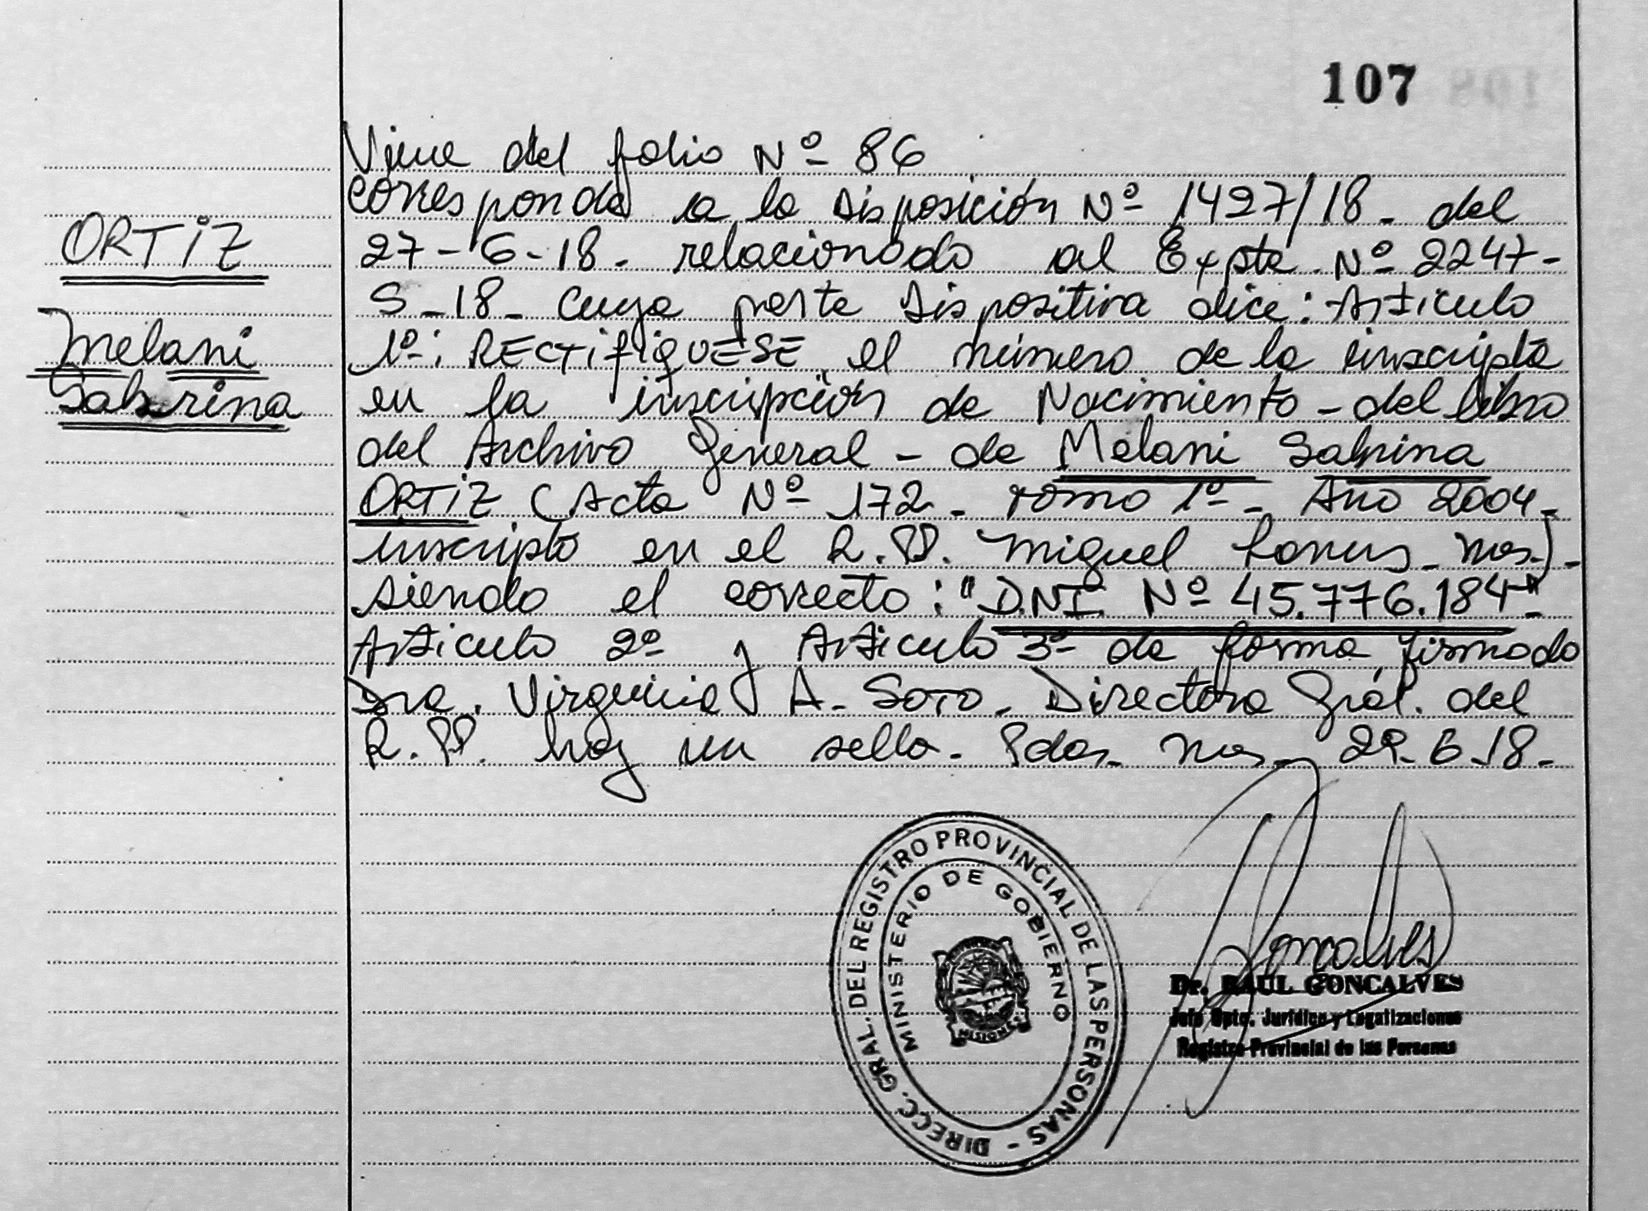 107
Viene del folio Nº 86
ORTIZ
Melani
Sabrina
corresponde a la Disposición Nº 1427/18 - del
27-6-18 - relacionado al Expte. Nº 2247-
S-18 - cuya parte dispositiva dice: Articulo
1º: RECTIFIQUESE el número de la inscripta
en la inscripción de Nacimiento - del libro
del Archivo General - de Melani Sabrina
ORTIZ (Acta Nº 172 - Tomo 1º - Año 2004 -
inscripto en el R.PP. Miguel Lanus - Mns.) -
siendo el correcto: "D.N.I. Nº 45.776.184" -
Articulo 2º y Articulo 3º de forma firmado
Dra. Virginia A. SOTO - Directora Gral. del
R.PP. hay un sello - Pdas. Mns. 29.6.18 -
DIRECC. GRAL. DEL REGISTRO PROVINCIAL DE LAS PERSONAS -
MINISTERIO DE GOBIERNO
MISIONES
Goncalves
Dr. RAUL GONCALVES
Jefe Dpto. Jurídico y Legalizaciones
Registro Provincial de las Personas